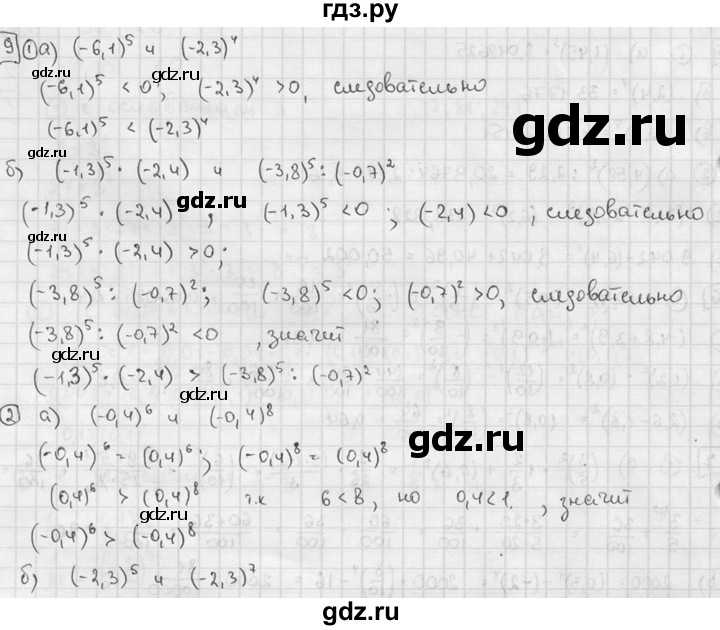 гдз.ру
9 ① а) (-6,1)⁵ и (-2,3)⁴
(-6,1)⁵ < 0; (-2,3)⁴ > 0, следовательно
gdz.ru
(-6,1)⁵ < (-2,3)⁴
gdz.ru
gdz.ru
б) (-1,3)⁵ · (-2,4) и (-3,8)⁵ : (-0,7)²
gdz.ru
(-1,3)⁵ · (-2,4) ; (-1,3)⁵ < 0 ; (-2,4) < 0 , следовательно
(-1,3)⁵ · (-2,4) > 0;
gdz.ru
gdz.ru
(-3,8)⁵ : (-0,7)²; (-3,8)⁵ < 0; (-0,7)² > 0, следовательно
(-3,8)⁵ : (-0,7)² < 0 , значит
gdz.ru
gdz.ru
(-1,3)⁵ · (-2,4) > (-3,8)⁵ : (-0,7)²
② а) (-0,4)⁶ и (-0,4)⁸
gdz.ru
gdz.ru
(-0,4)⁶ = (0,4)⁶; (-0,4)⁸ = (0,4)⁸
(0,4)⁶ > (0,4)⁸ т.к 6 < 8, но 0,4 < 1 , значит
gdz.ru
(-0,4)⁶ > (-0,4)⁸
gdz.ru
б) (-2,3)⁵ и (-2,3)⁷
gdz.ru
gdz.ru